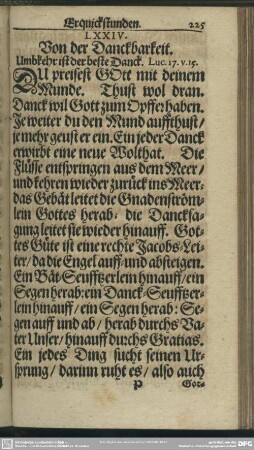 Erquickstunden. 225
LXXIV.
Von der Danckbarkeit.
Umbkehr ist der beste Danck. Luc. 17. v. 15.
DU preisest GOtt mit deinem
Munde. Thust wol dran.
Danck wil Gott zum Opffer haben.
Je weiter du den Mund auffthust/
je mehr geust er ein. Ein jeder Danck
erwirbt eine neue Wolthat. Die
Flüsse entspringen aus dem Meer/
und kehren wieder zurück ins Meer:
das Gebät leitet die Gnadenström-
lein Gottes herab: die Dancksa-
gung leitet sie wieder hinauff. Got-
tes Güte ist eine rechte Jacobs-Lei-
ter/ da die Engel auff- und absteigen.
Ein Bät-Seufftzerlein hinauff/ ein
Segen herab: ein Danck-Seufftzer-
lein hinauff/ ein Segen herab: Se-
gen auff und ab/ herab durchs Va-
ter Unser/ hinauff durchs Gratias.
Ein jedes Ding sucht seinen Ur-
sprung/ darinn ruht es/ also auch
P Got-